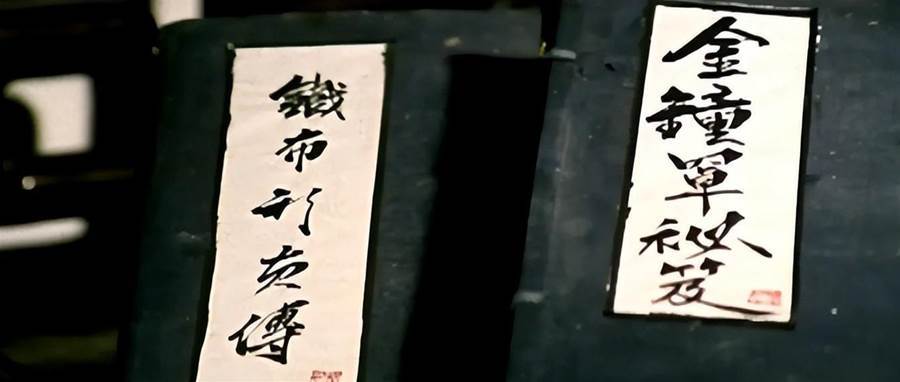 金鐘罩祕笈
鐵布衫真傳